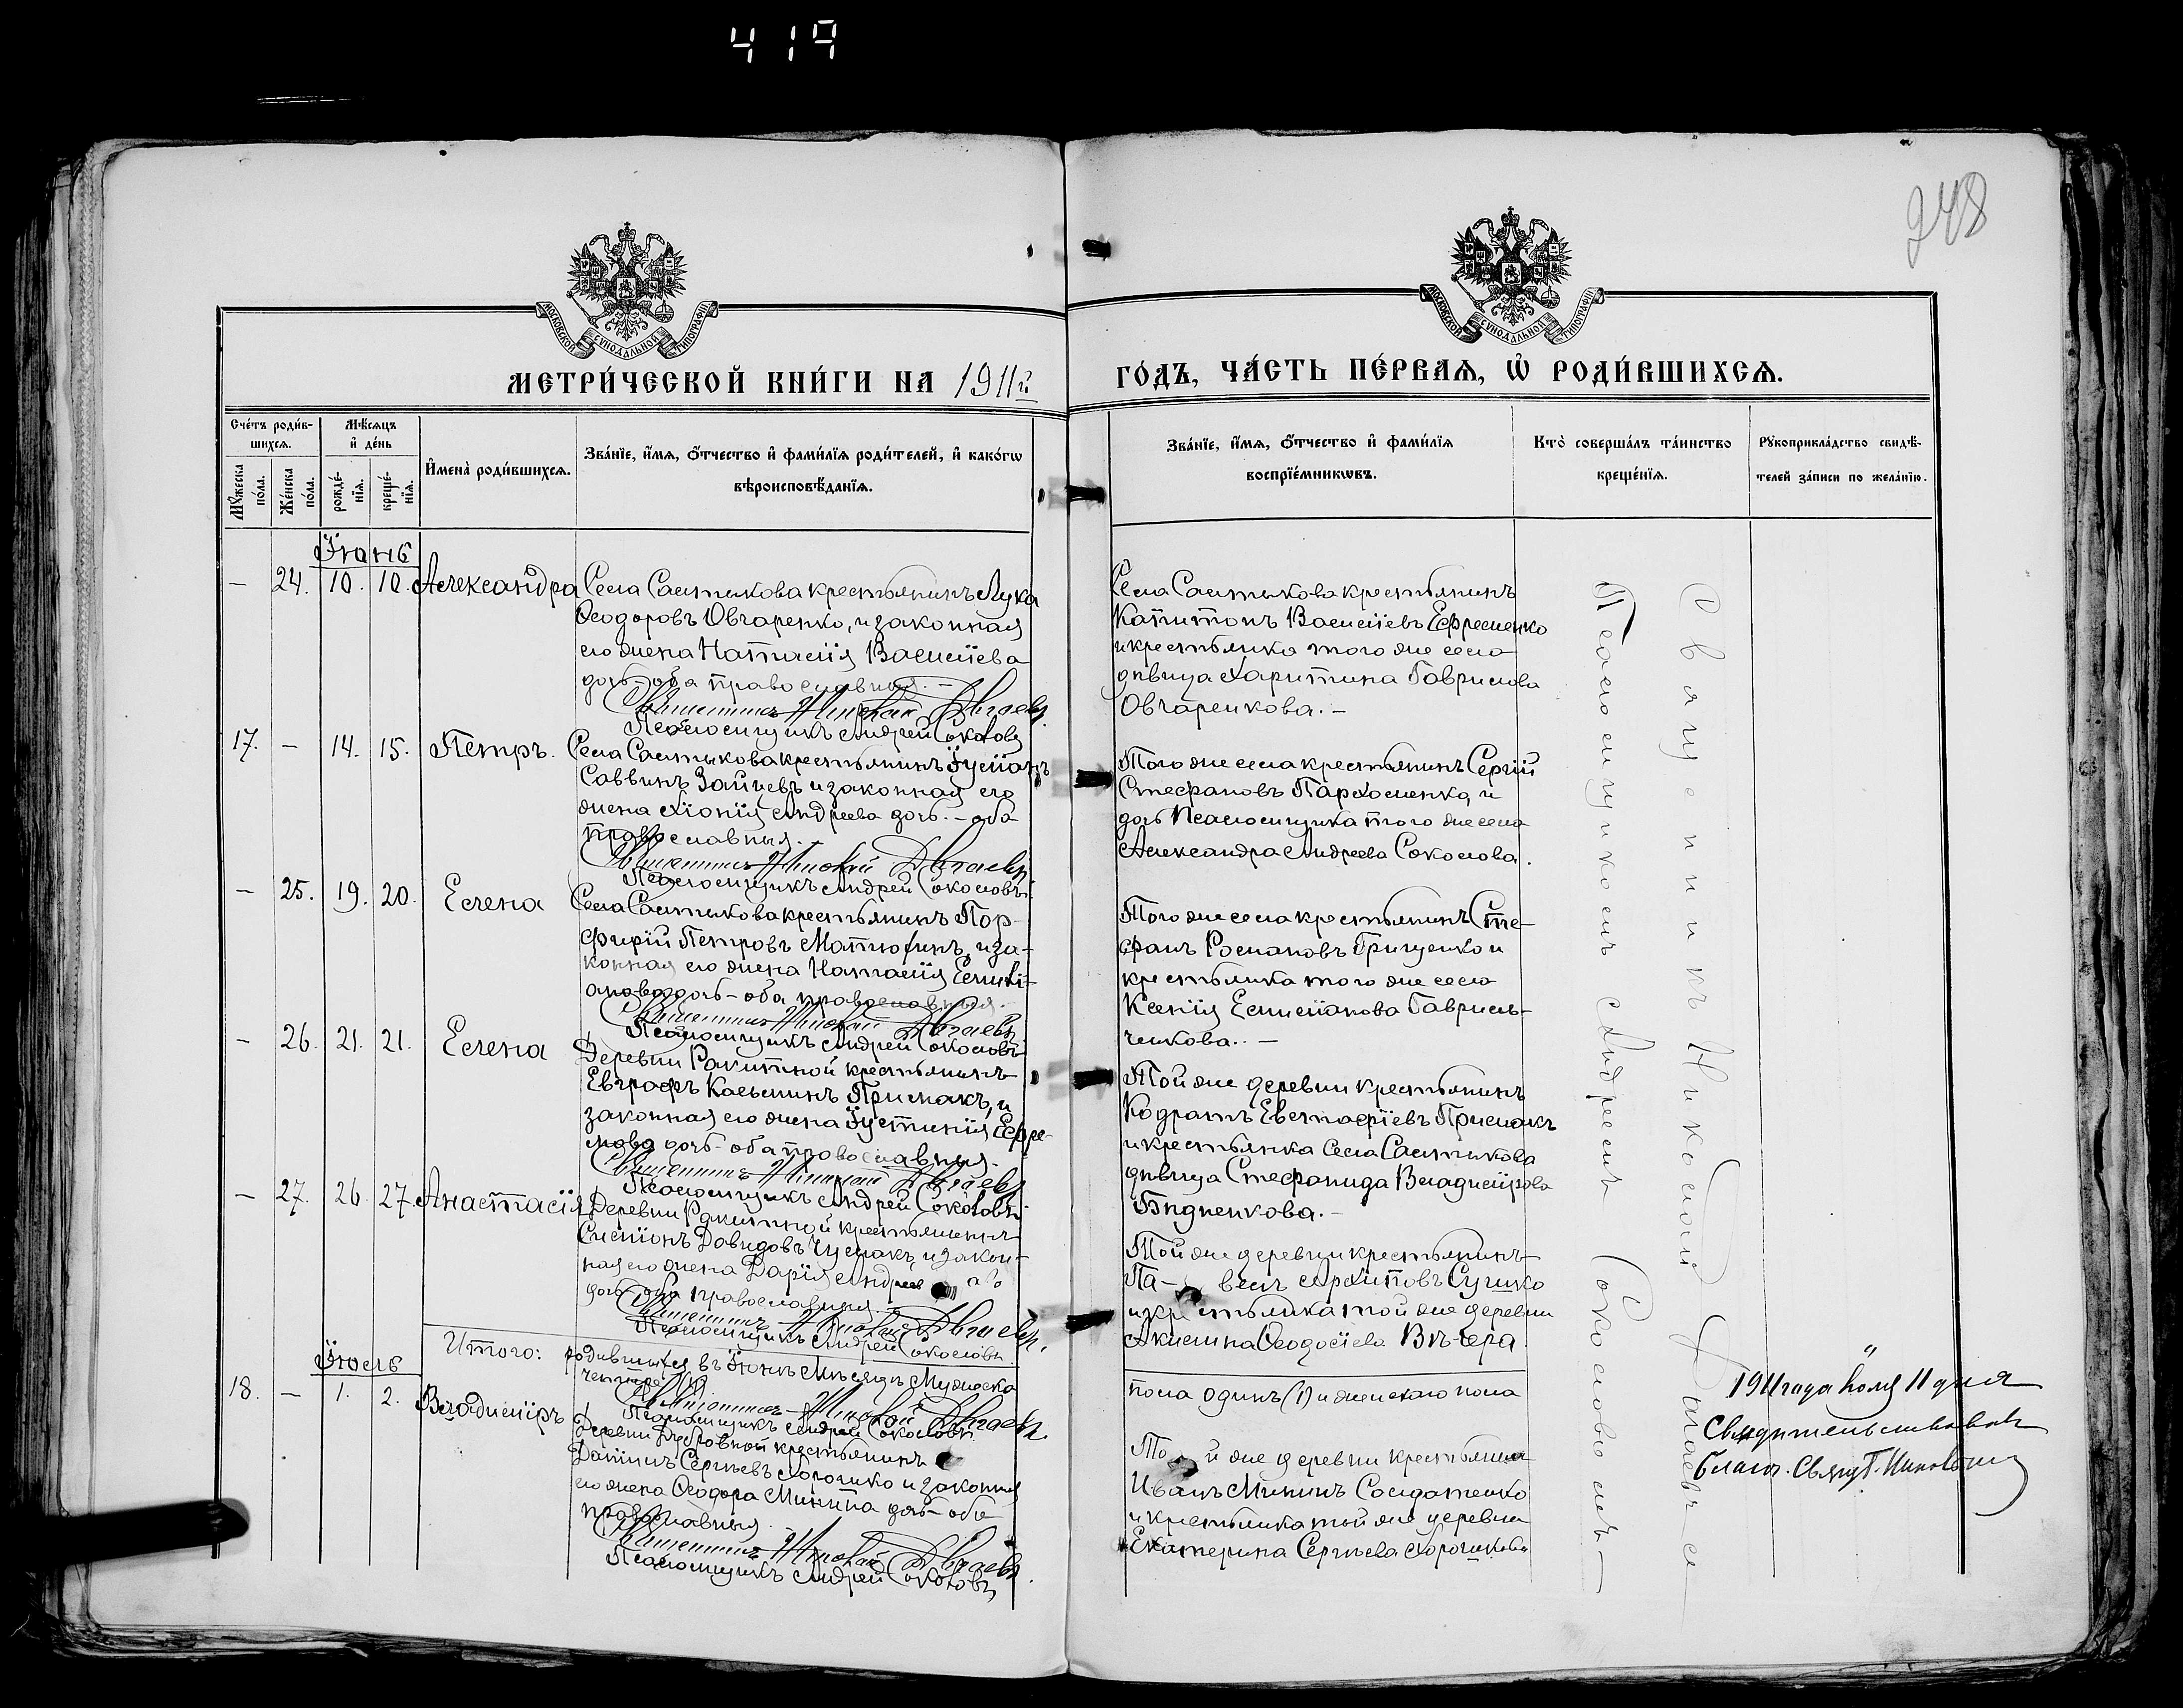 419
248
МОСКОВСКОЙ СѴНОДАЛЬНОЙ ТИПОГРАФІИ
МОСКОВСКОЙ СѴНОДАЛЬНОЙ ТИПОГРАФІИ
МЕТРИ́ЧЕСКОЙ КНИ́ГИ НА 1911й
ГО́ДЪ, ЧА́СТЬ ПЕ́РВАЯ, Ѡ҆ РОДИ́ВШИХСЯ.
Сче́тъ роди́в-
шихся.
Мѣ́сяцъ
и҆ де́нь
Мꙋ́жеска по́ла.
Же́нска по́ла.
рожде́-нїя.
креще́-нїя.
И҆мена̀ роди́вшихся.
Зва́нїе, и҆́мя, ѻ҆́тчество и҆ фами́лїя роди́телей, и҆ како́гѡ
вѣроисповѣ́данїя.
Зва́нїе, и҆́мя, ѻ҆́тчество и҆ фами́лїя
воспрїе́мникѡвъ.
Кто̀ соверша́лъ та́инство
креще́нїя.
Рꙋкоприкла́дство свидѣ́-
телей за́писи по жела́нїю.
Іюнь
— 24. 10. 10. Александра
Села Салтыкова крестьянинъ Лука
Ѳеодоровъ Овчаренко, и законная
его жена Наталія Василіева
дочь - оба православныя. –
Священникъ Николай
Псаломщикъ Андрей Соколовъ
Села Салтыкова крестьянинъ
Капитонъ Василіевъ Ефременко
и крестьянка того же села
дѣвица Харитина Гаврилова
Овчаренкова. –
17. — 14. 15. Петръ.
Села Салтыкова крестьянинъ Іуліанъ
Саввинъ Зайцевъ и законная его
жена Хіонія Андреева дочь. – оба
православныя.
Священникъ Николай
Псаломщикъ Андрей Соколовъ.
Того же села крестьянинъ Сергій
Стефановъ Пархоменко, и
дочь Псаломщика того же села
Александра Андреева Соколова.
— 25. 19. 20. Елена
Села Салтыкова крестьянинъ Пор-
фирій Петровъ Матюхинъ, и за-
конная его жена Наталія Емилі-
анова дочь - оба православныя.
Священникъ Николай
Псаломщикъ Андрей Соколовъ
Того же села крестьянинъ Сте-
фанъ Романовъ Гриценко и
крестьянка того же села
Ксенія Емиліанова Гаврилъ-
ченкова. –
— 26. 21. 21. Елена
Деревни Ракитной крестьянинъ
Евграфъ Касьминъ Примакъ, и
законная его жена Іустинія Ефре-
мова дочь - оба православныя.
Священникъ Николай
Псаломщикъ Андрей Соколовъ
Той же деревни крестьянинъ
Кодратъ Евстафіевъ Примакъ
и крестьянка села Салтыкова
дѣвица Стефанида Владимірова
Бѣдненкова. –
— 27. 26. 27. Анастасія
Деревни Ракитной крестьянинъ
Симеонъ Давидовъ Чумакъ, и закон-
ная его жена Дарія Андреева
дочь - оба православныя.
Священникъ Николай
Псаломщикъ Андрей Соколовъ.
Той же деревни крестьянинъ
Па- велъ Архиповъ Сушко
и крестьянка той же деревни
Акилина Ѳеодосіева Вечера.
Итого: родившихся въ Іюнѣ мѣсяцѣ мужеска
пола одинъ (1) и женскаго пола
четыре (4)
Священникъ Николай
Псаломщикъ Андрей Соколовъ
Іюль
18. — 1. 2. Владиміръ
Деревни Дубровной крестьянинъ
Даніилъ Сергѣевъ Хорошко и законная
его жена Ѳеодора Минина дочь - оба
православныя.
Священникъ Николай
Псаломщикъ Андрей Соколовъ
Той же деревни крестьянинъ
Иванъ Мининъ Солдатенко
и крестьянка той же деревни
Екатерина Сергѣева Хорошкова
Священникъ Николай
Псаломщикомъ Андреемъ Соколовымъ –
1911 года Іюля 11 дня
Свидѣтельствовалъ
благ. Свящ.